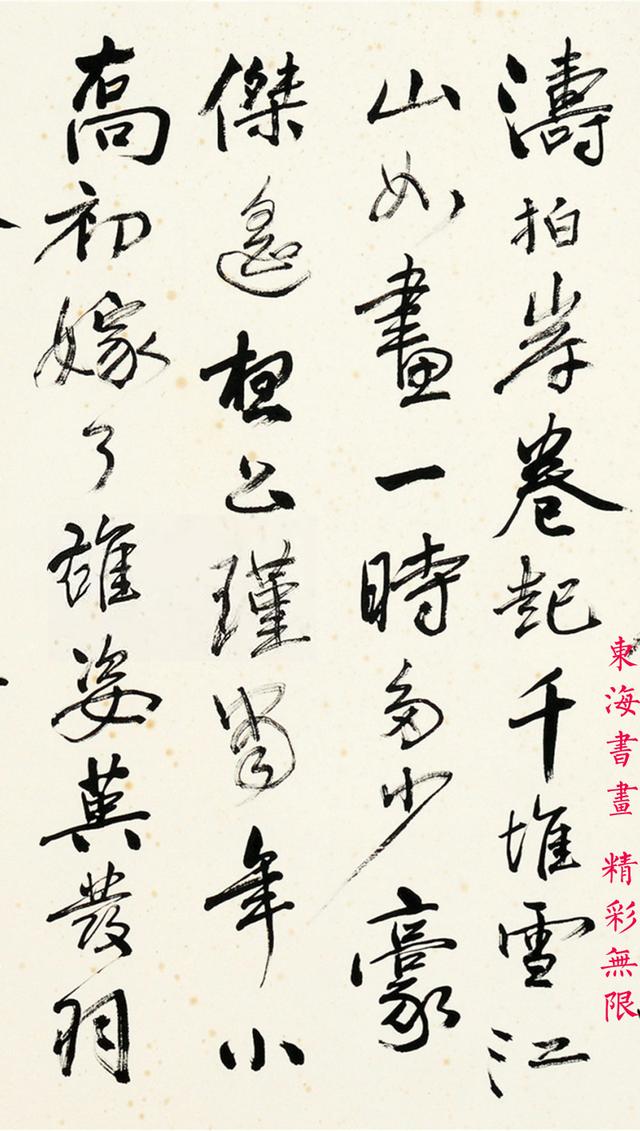 濤拍岸卷起千堆雪江
山如畫一時多少豪
傑遙想公瑾當年小
喬初嫁了雄姿英發羽
東海書畫 精彩無限